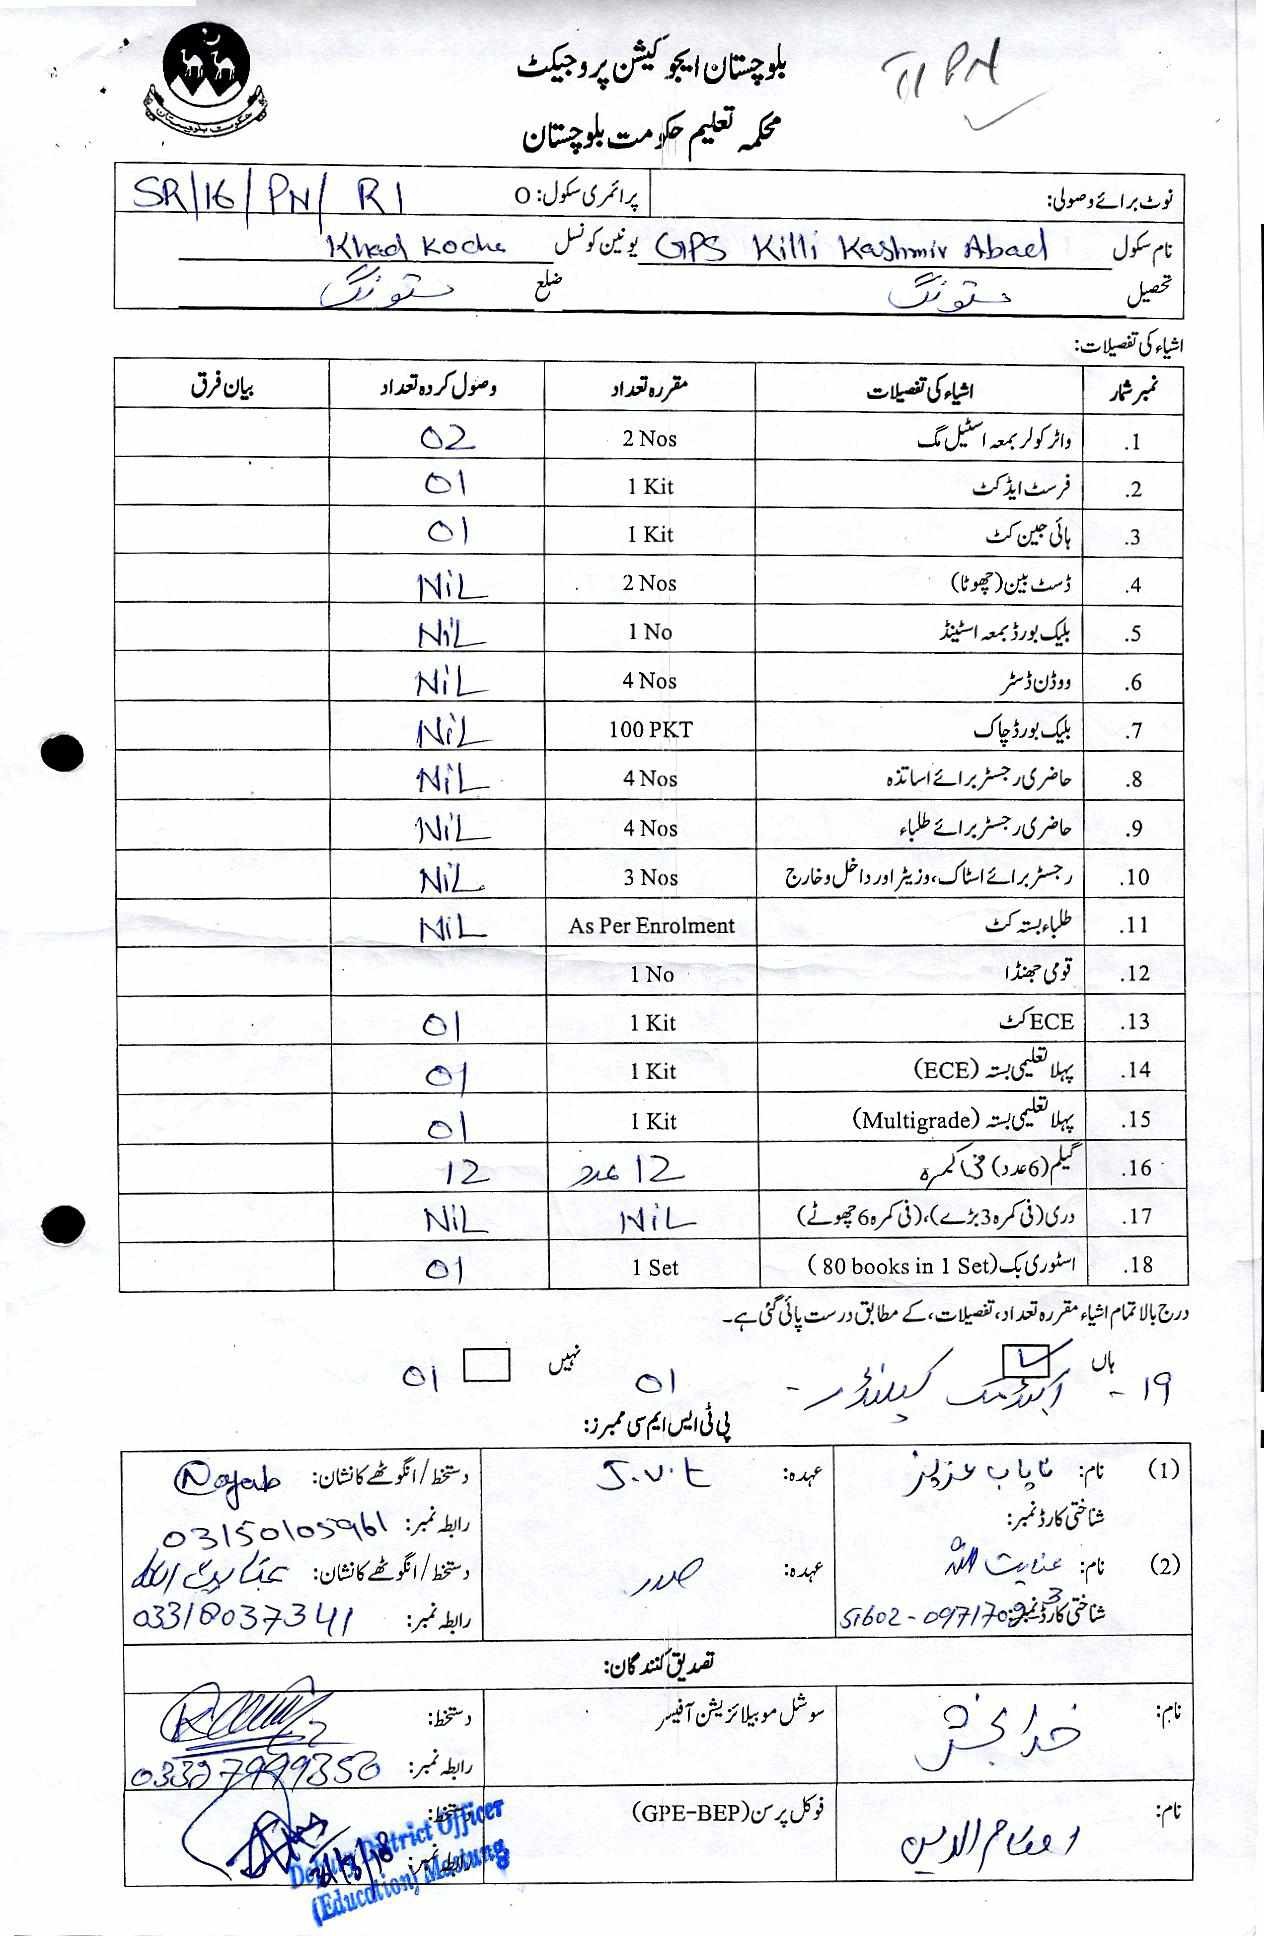 حکومت بلوچستان
بلوچستان ایجوکیشن پروجیکٹ
PN
محکمہ تعلیم حکومت بلوچستان
نوٹ برائے وصولی: پرائمری سکول: O SR/16/PN/ R1
نام سکول GPS Killi Kashmir Abad یونین کونسل Khad Koche
تحصیل مستونگ ضلع مستونگ
اشیاء کی تفصیلات:
نمبر شمار اشیاء کی تفصیلات مقررہ تعداد وصول کردہ تعداد بیان فرق
1. واٹر کولر بمعہ اسٹیل مگ 2 Nos 02
2. فرسٹ ایڈ کٹ 1 Kit 01
3. ہائی جین کٹ 1 Kit 01
4. ڈسٹ بین (چھوٹا) 2 Nos NiL
5. بلیک بورڈ بمعہ اسٹینڈ 1 No NiL
6. ووڈن ڈسٹر 4 Nos NiL
7. بلیک بورڈ چاک 100 PKT NiL
8. حاضری رجسٹر برائے اساتذہ 4 Nos NiL
9. حاضری رجسٹر برائے طلباء 4 Nos NiL
10. رجسٹر برائے اسٹاک، وزیٹر اور داخل و خارج 3 Nos NiL
11. طلباء بستہ کٹ As Per Enrolment NiL
12. قومی جھنڈا 1 No
13. ECE کٹ 1 Kit 01
14. پہلا تعلیمی بستہ (ECE) 1 Kit 01
15. پہلا تعلیمی بستہ (Multigrade) 1 Kit 01
16. گیلم (6 عدد) فی کمرہ 12 عدد 12
17. دری (فی کمرہ 3 بڑے)، (فی کمرہ 6 چھوٹے) NiL NiL
18. اسٹوری بک (80 books in 1 Set) 1 Set 01
درج بالا تمام اشیاء مقررہ تعداد، تفصیلات، کے مطابق درست پائی گئی ہے۔
ہاں ✓ نہیں
19- اکیڈمک کیلنڈر - 01 01
پی ٹی ایس ایم سی ممبرز:
(1) نام: نایاب عزیز عہدہ: J.V.t دستخط/انگوٹھے کا نشان: Nayab
شناختی کارڈ نمبر: رابطہ نمبر: 03150105961
(2) نام: عنایت اللہ عہدہ: صدر دستخط/انگوٹھے کا نشان: عنایت اللہ
شناختی کارڈ نمبر: رابطہ نمبر: 03318037341
تصدیق کنندگان:
نام: خدا بخش سوشل موبیلائزیشن آفیسر دستخط:
رابطہ نمبر: 03327999350
نام: فوکل پرسن (GPE-BEP) دستخط:
رابطہ نمبر:
Deputy District Officer
(Education) Mastung